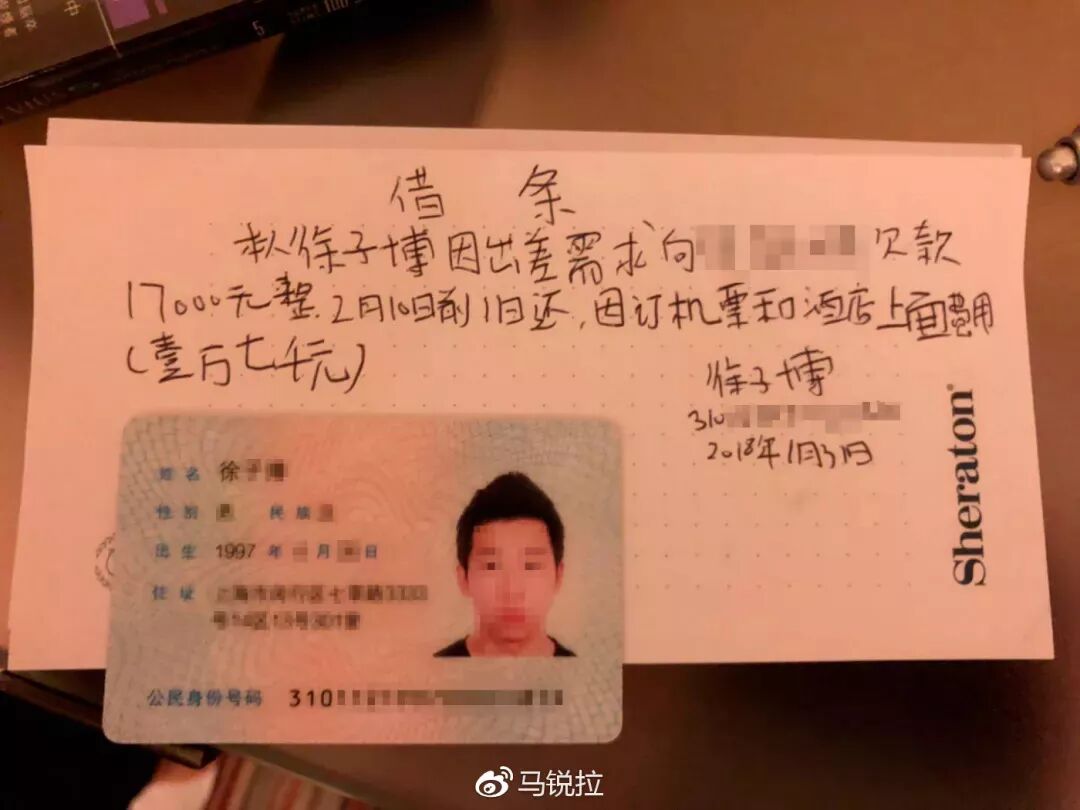 借 条
本人徐子博因出差需求向 欠款
17000元整.2月10日前1日还,因订机票和酒店上面费用
(壹万七千元)
徐子博
310
2018年1月31日
Sheraton
姓名 徐子
性别 民族
出生 1997 年 月 日
住址
公民身份号码 310
中
5
马锐拉